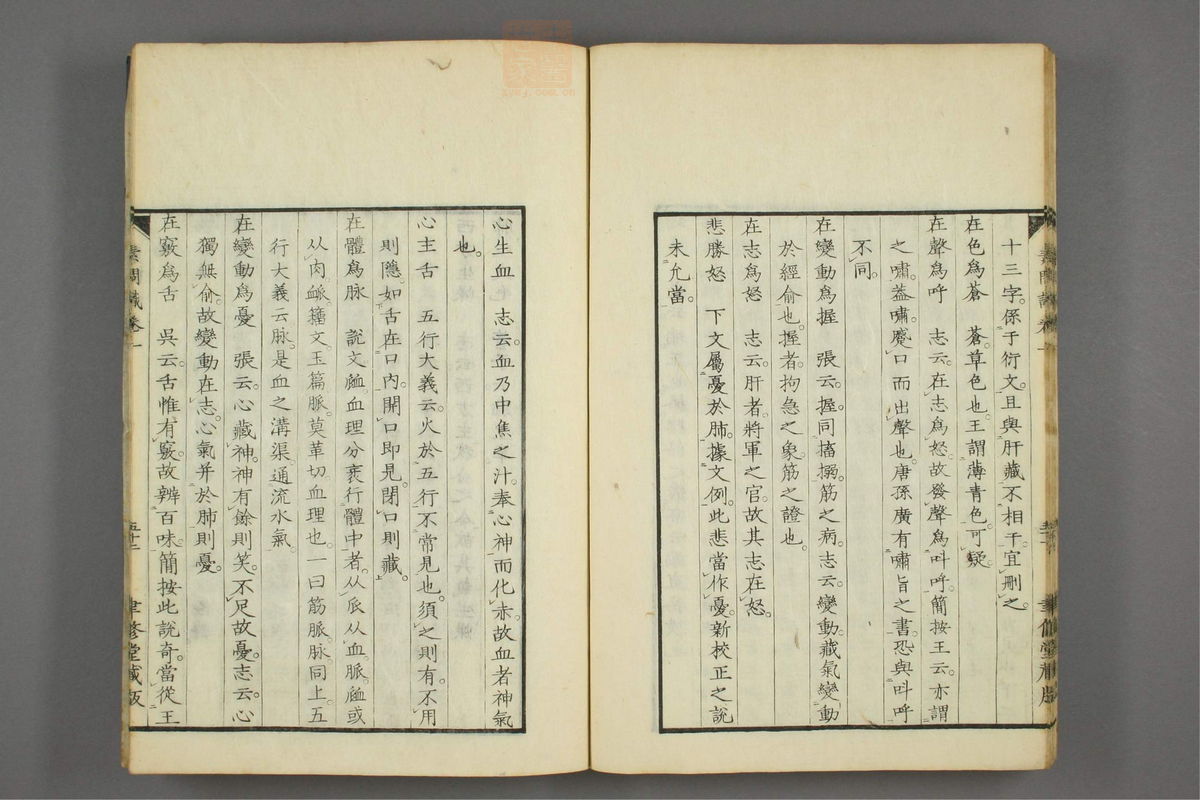 十三字。係于衍文。且與肝藏不相干。宜刪之。
在色爲蒼　蒼。草色也。王謂薄青色。可疑。
在聲爲呼　志云。在志爲怒。故發聲爲叫呼。簡按王云。亦謂
之嘯。蓋嘯。蹙口而出聲也。唐孫廣有嘯旨之書。恐與叫呼
不同。
在變動爲握　張云。握同搐搦。筋之病。志云。變動。藏氣變動
於經俞也。握者。拘急之象。筋之證也。
在志爲怒　志云。肝者。將軍之官。故其志在怒。
悲勝怒　下文屬憂於肺。據文例。此悲當作憂。新校正之說
未允當。
心生血　志云。血乃中焦之汁。奉心神而化赤。故血者神氣
也。
心主舌　五行大義云。火於五行。不常見也。須之則有。不用
則隱。如舌在口內。開口即見。閉口則藏。
在體爲脉　說文。䘑。血理分衺行體中者。从𠂢从血。脈。䘑或
从肉。𧖴。籒文。玉篇。脈。莫革切。血理也。一曰筋脈。脉同上。五
行大義云。脉。是血之溝渠。通流水氣。
在變動爲憂　張云。心藏神。神有餘則笑。不足故憂。志云。心
獨無俞。故變動在志。心氣并於肺則憂。
在竅爲舌　吳云。舌惟有竅。故辨百味。簡按此說奇。當從王
素問識卷一
聿修堂藏版